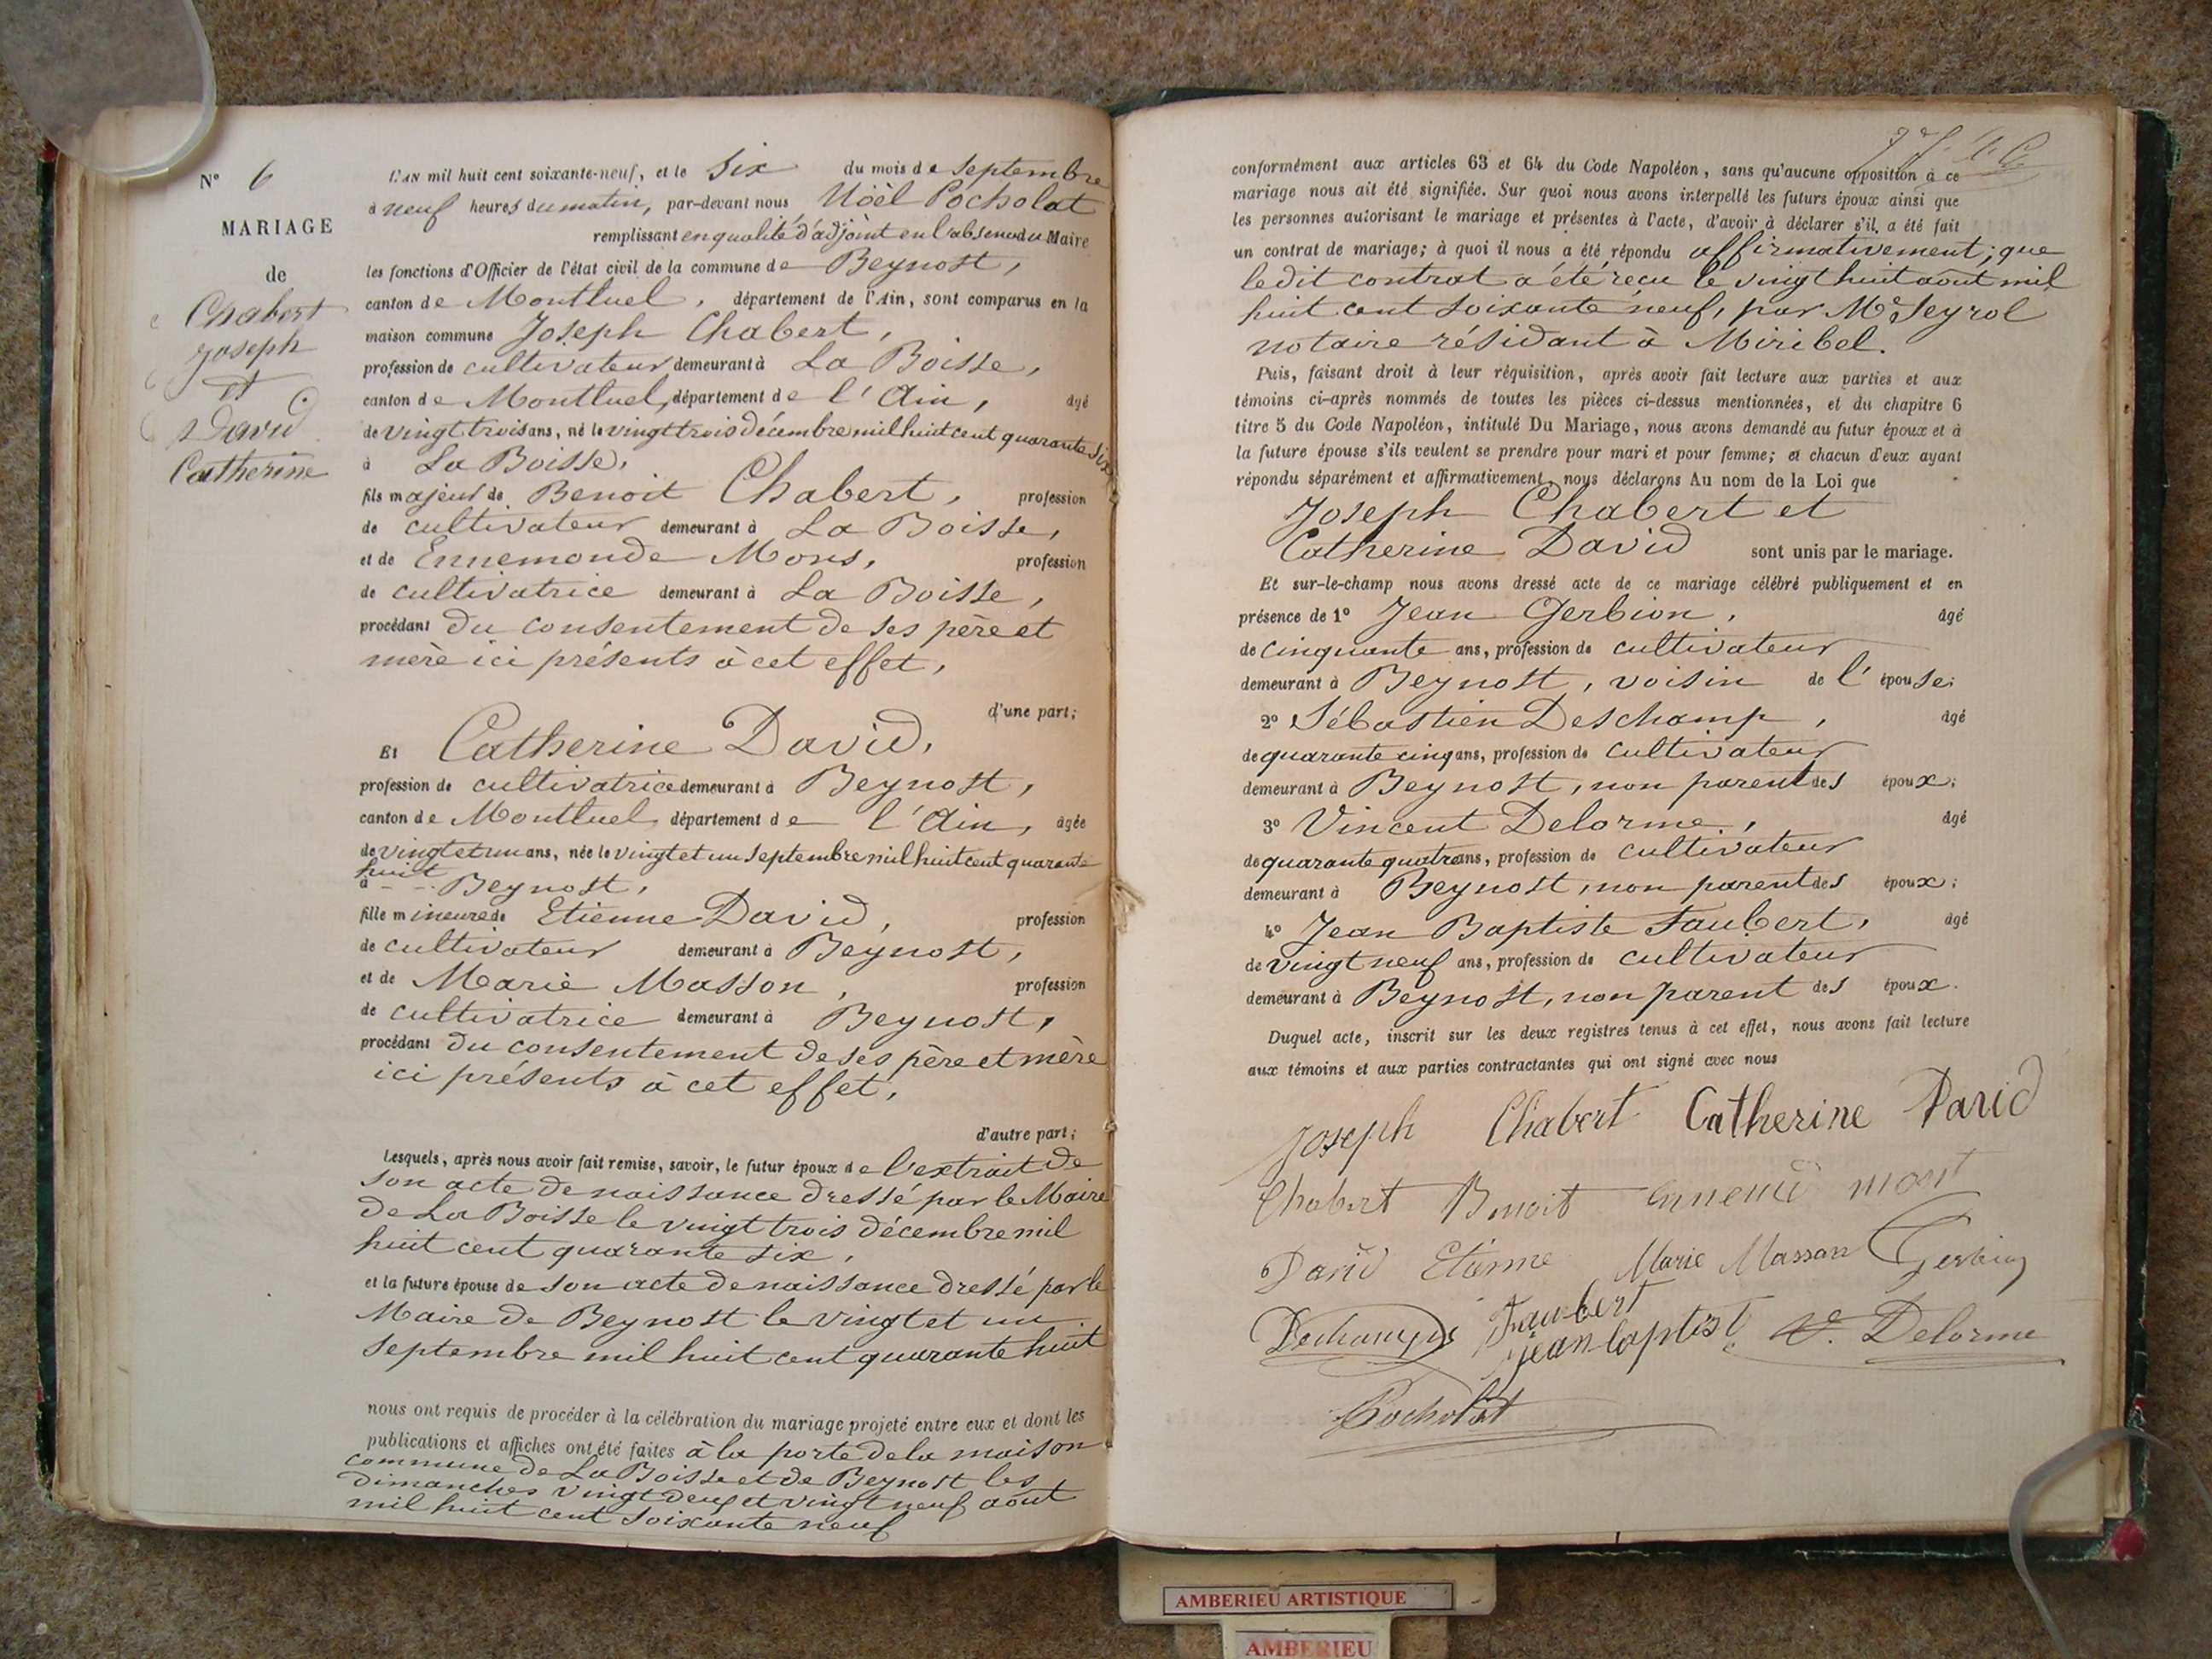 N° 6
MARIAGE
de
Chabert
Joseph
et
David
Catherine
L'AN mil huit cent soixante-neuf, et le Six du mois de Septembre
à neuf heures du matin, par-devant nous Noël Pocholat
remplissant en qualité d'adjoint en l'absence du Maire
les fonctions d'Officier de l'état civil de la commune de Beynost,
canton de Montluel, département de l'Ain, sont comparus en la
maison commune Joseph Chabert,
profession de cultivateur demeurant à La Boisse,
canton de Montluel, département de l'Ain, âgé
de vingt trois ans, né le vingt trois décembre mil huit cent quarante six
à La Boisse,
fils majeur de Benoit Chabert, profession
de cultivateur demeurant à La Boisse,
et de Ennemonde Mons, profession
de cultivatrice demeurant à La Boisse,
procédant du consentement de ses père et
mère ici présents à cet effet,
d'une part;
Et Catherine David,
profession de cultivatrice demeurant à Beynost,
canton de Montluel département de l'Ain, âgée
de vingt et un ans, née le vingt et un septembre mil huit cent quarante
huit
à Beynost,
fille mineure de Etienne David, profession
de cultivateur demeurant à Beynost,
et de Marie Masson, profession
de cultivatrice demeurant à Beynost,
procédant du consentement de ses père et mère
ici présents à cet effet,
d'autre part;
Lesquels, après nous avoir fait remise, savoir, le futur époux de l'extrait de
son acte de naissance dressé par le Maire
de La Boisse le vingt trois décembre mil
huit cent quarante six,
et la future épouse de son acte de naissance dressé par le
Maire de Beynost le vingt et un
septembre mil huit cent quarante huit
nous ont requis de procéder à la célébration du mariage projeté entre eux et dont les
publications et affiches ont été faites à la porte de la maison
commune de La Boisse et de Beynost les
dimanches vingt deux et vingt neuf août
mil huit cent soixante neuf
conformément aux articles 63 et 64 du Code Napoléon, sans qu'aucune opposition à ce
mariage nous ait été signifiée. Sur quoi nous avons interpellé les futurs époux ainsi que
les personnes autorisant le mariage et présentes à l'acte, d'avoir à déclarer s'il a été fait
un contrat de mariage; à quoi il nous a été répondu affirmativement; que
ledit contrat a été reçu le vingt huit août mil
huit cent soixante neuf, par Me Seyrol
notaire résidant à Miribel.
Puis, faisant droit à leur réquisition, après avoir fait lecture aux parties et aux
témoins ci-après nommés de toutes les pièces ci-dessus mentionnées, et du chapitre 6
titre 5 du Code Napoléon, intitulé Du Mariage, nous avons demandé au futur époux et à
la future épouse s'ils veulent se prendre pour mari et pour femme; et chacun d'eux ayant
répondu séparément et affirmativement, nous déclarons Au nom de la Loi que
Joseph Chabert et
Catherine David sont unis par le mariage.
Et sur-le-champ nous avons dressé acte de ce mariage célébré publiquement et en
présence de 1° Jean Gerbion, âgé
de cinquante ans, profession de cultivateur
demeurant à Beynost, voisin de l'épouse;
2° Sébastien Deschamp, âgé
de quarante cinq ans, profession de cultivateur
demeurant à Beynost, non parent des époux;
3° Vincent Delorme, âgé
de quarante quatre ans, profession de cultivateur
demeurant à Beynost, non parent des époux;
4° Jean Baptiste Faubert, âgé
de vingt neuf ans, profession de cultivateur
demeurant à Beynost, non parent des époux.
Duquel acte, inscrit sur les deux registres tenus à cet effet, nous avons fait lecture
aux témoins et aux parties contractantes qui ont signé avec nous
Joseph Chabert Catherine David
Chabert Benoit mont
David Etienne Marie Masson Gerbion
Dechamps Faubert
jean baptist V. Delorme
Pocholat
AMBERIEU ARTISTIQUE
AMBERIEU